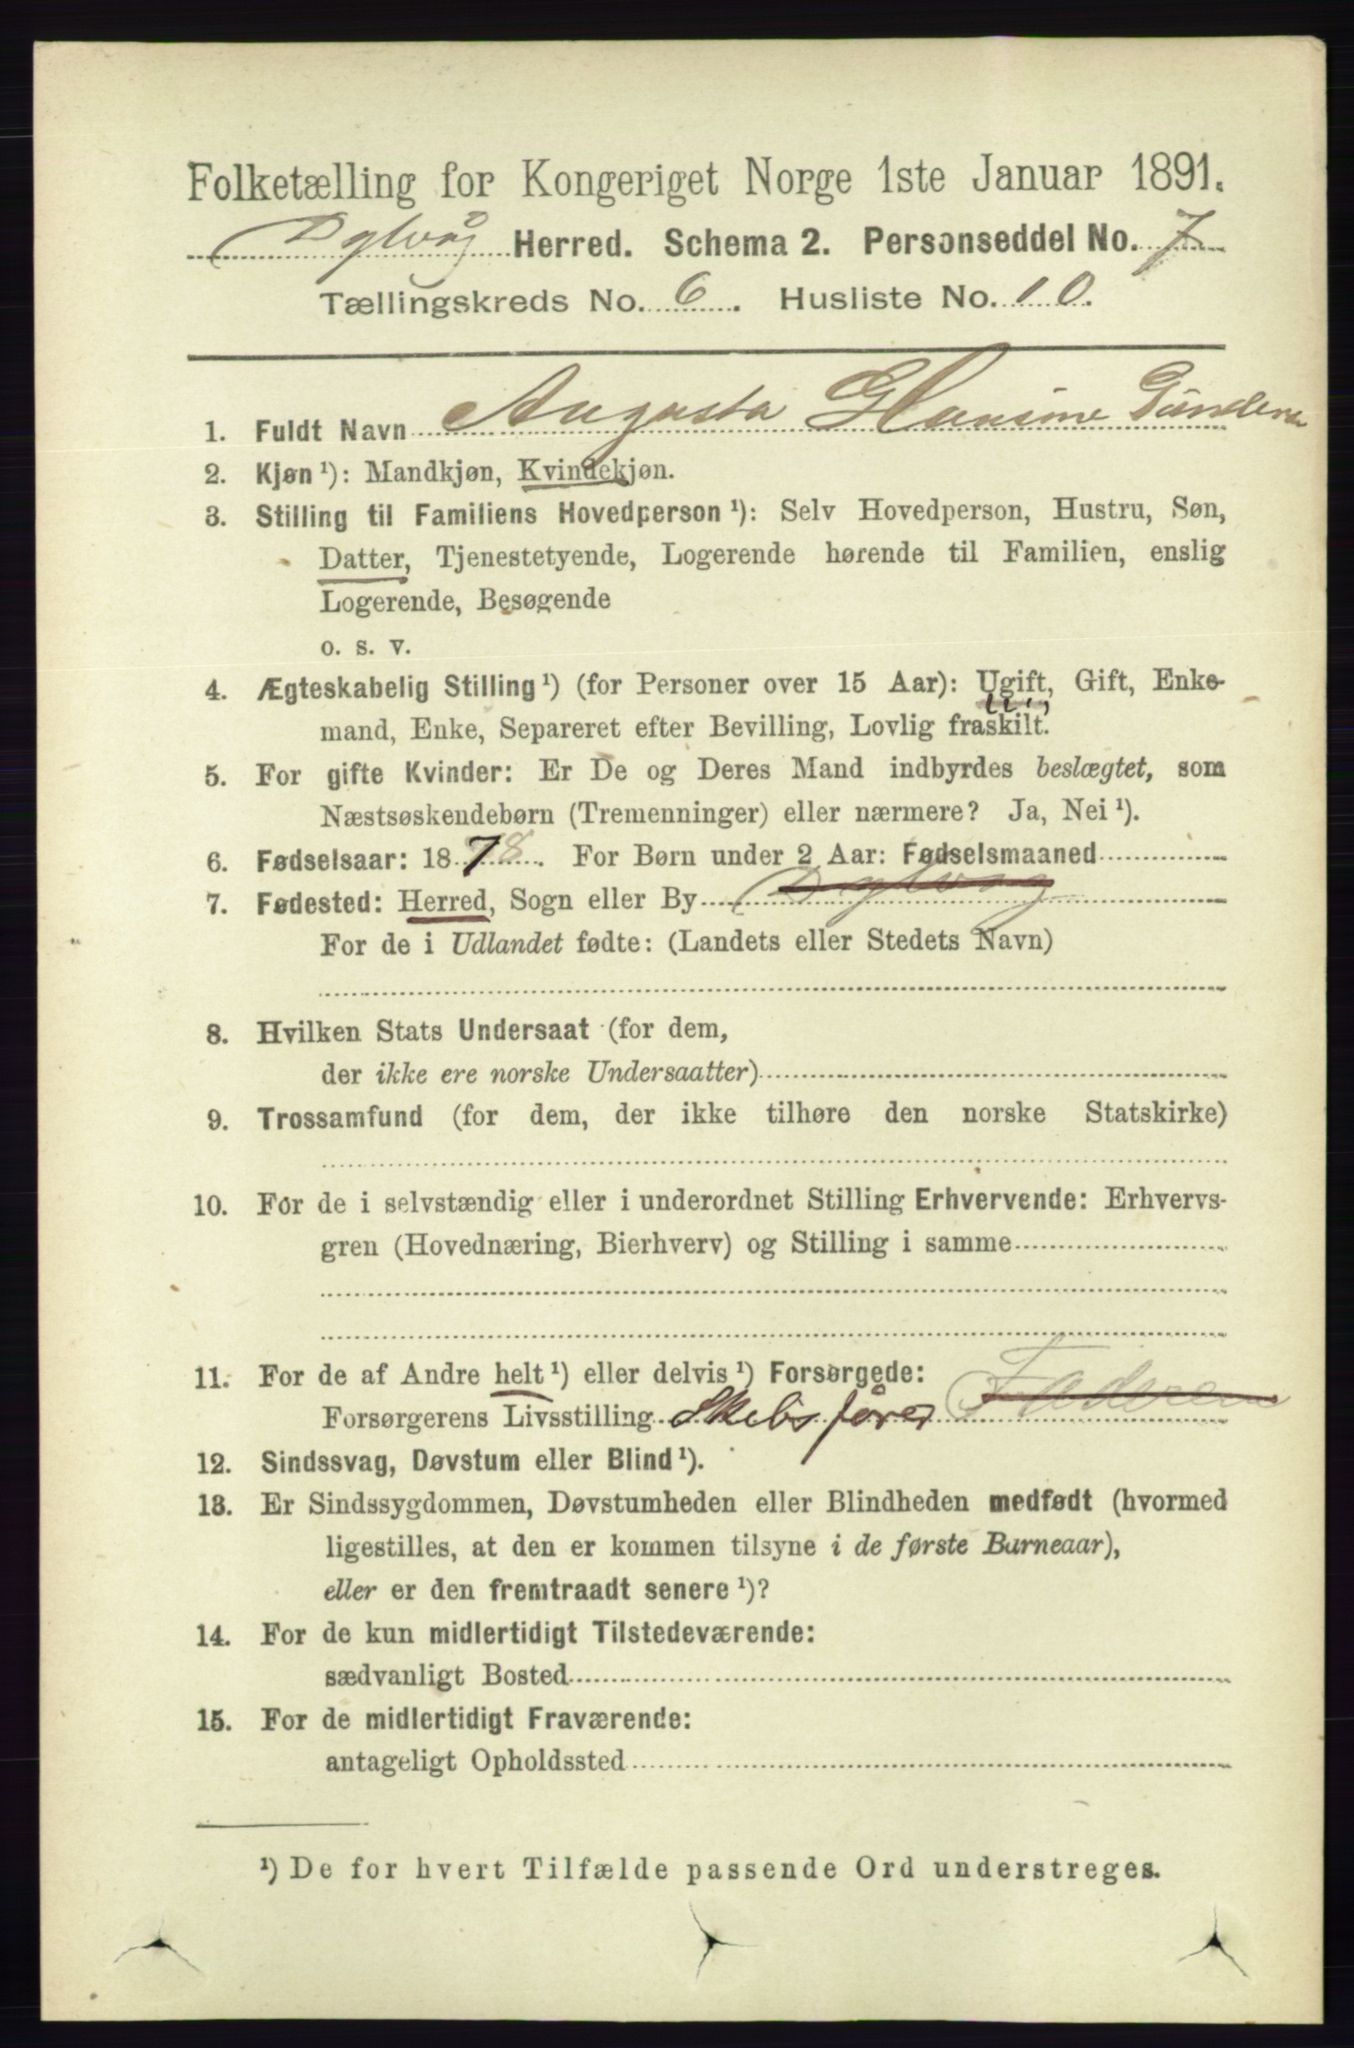 Folketælling for Kongeriget Norge 1ste Januar 1891.
Dybvåg Herred. Schema 2. Personseddel No. 7
Tællingskreds No. 6. Husliste No. 10.
1. Fuldt Navn Augusta Hansine Gundersen
2. Kjøn ¹): Mandkjøn, Kvindekjøn.
3. Stilling til Familiens Hovedperson ¹): Selv Hovedperson, Hustru, Søn,
Datter, Tjenestetyende, Logerende hørende til Familien, enslig
Logerende, Besøgende
o. s. v.
4. Ægteskabelig Stilling ¹) (for Personer over 15 Aar): Ugift, Gift, Enke-
mand, Enke, Separeret efter Bevilling, Lovlig fraskilt.
5. For gifte Kvinder: Er De og Deres Mand indbyrdes beslægtet, som
Næstsøskendebørn (Tremenninger) eller nærmere? Ja, Nei ¹).
6. Fødselsaar: 1878. For Børn under 2 Aar: Fødselsmaaned
7. Fødested: Herred, Sogn eller By Dybvåg
For de i Udlandet fødte: (Landets eller Stedets Navn)
8. Hvilken Stats Undersaat (for dem,
der ikke ere norske Undersaatter)
9. Trossamfund (for dem, der ikke tilhøre den norske Statskirke)
10. For de i selvstændig eller i underordnet Stilling Erhvervende: Erhvervs-
gren (Hovednæring, Bierhverv) og Stilling i samme
11. For de af Andre helt ¹) eller delvis ¹) Forsørgede:
Forsørgerens Livsstilling Skibsfører Faderen
12. Sindssvag, Døvstum eller Blind ¹).
13. Er Sindssygdommen, Døvstumheden eller Blindheden medfødt (hvormed
ligestilles, at den er kommen tilsyne i de første Barneaar),
eller er den fremtraadt senere ¹)?
14. For de kun midlertidigt Tilstedeværende:
sædvanligt Bosted
15. For de midlertidigt Fraværende:
antageligt Opholdssted
¹) De for hvert Tilfælde passende Ord understreges.